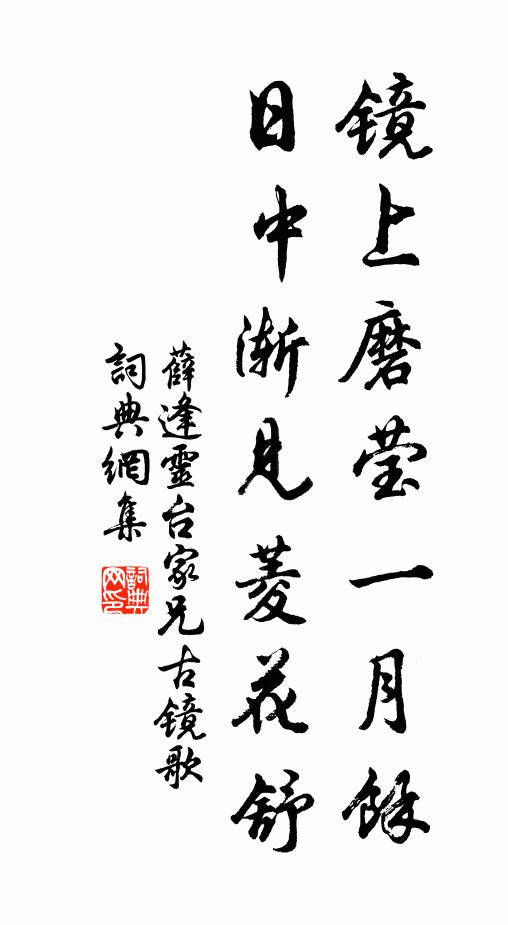 镜上磨莹一月餘
日中渐見菱花舒
薛逢靈台家兄古镜歌
詞典網集
詞典网印